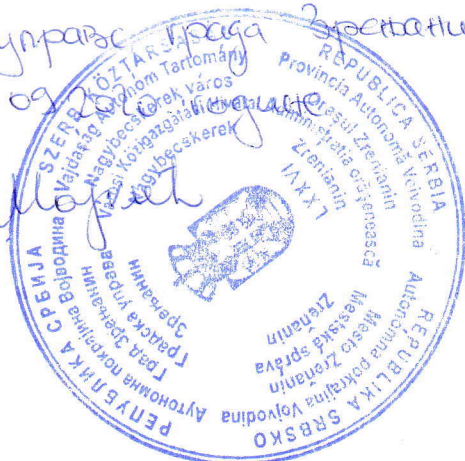 управе града Зрењанин
09.2020 године
Марић
РЕПУБЛИКА СРБИЈА
Аутономна покрајина Војводина
Град Зрењанин
Градска управа
Зрењанин
SZERB KÖZTÁRSA
Vajdaság Autonóm Tartomány
Nagybecskerek város
Városi Közigazgatási Hivatal
Nagybecskerek
REPUBLICA SERBA
Provincia Autonomă Voivodina
Oraşul Zrenianin
Administratia orăşenească
Zrenianin
LXXVI
REPUBLIKA SRBSKO
Autonómna pokrajina Vojvodina
Mesto Zreňanin
Mestská správa
Zreňanin